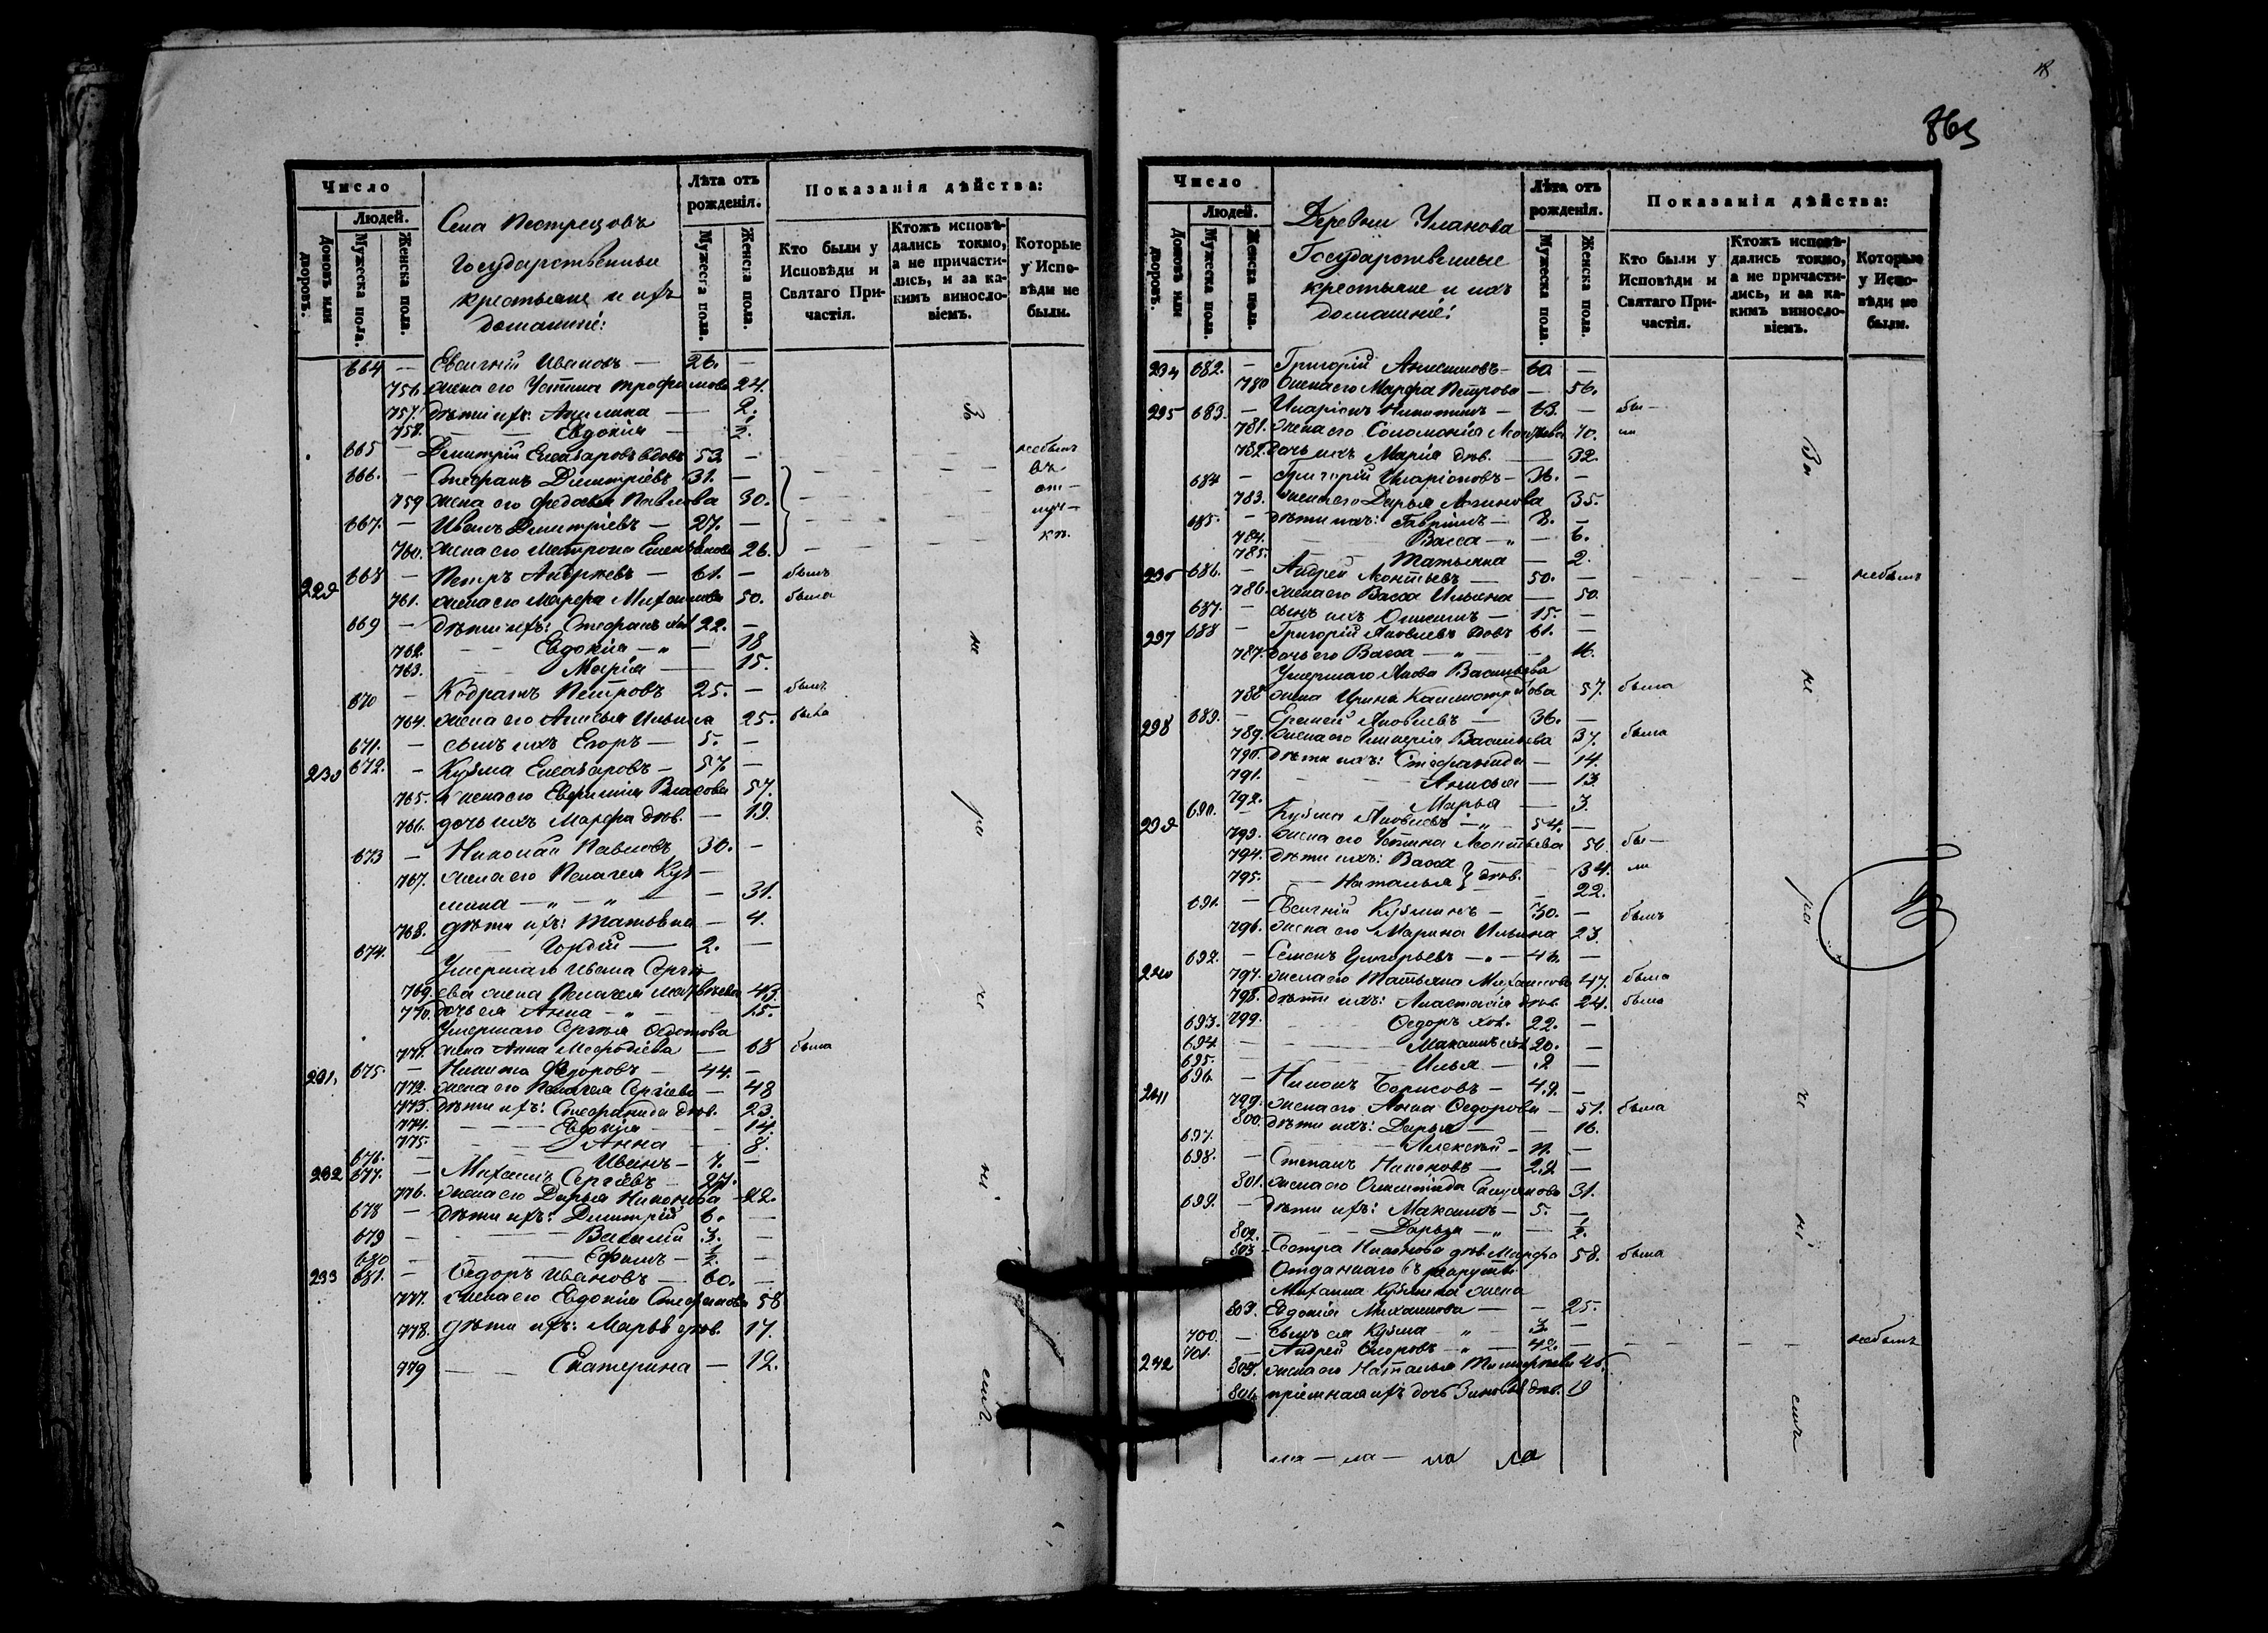 Число
Людей.
Домовъ или дворовъ.
Мужеска пола.
Женска пола.
Села Пестрецовъ
Государственные
крестьяне и ихъ
домашніе:
Лѣта отъ рожденія.
Мужеска пола.
Женска пола.
Показанія дѣйства:
Кто были у Исповѣди и Святаго Причастія.
Ктожъ исповѣдались токмо, а не причастились, и за какимъ винословіемъ.
Которые у Исповѣди не были.
664 — Евсигній Ивановъ — 26. —
756. жена его Устина Трофимова 24.
757. дѣти ихъ: Акилина — 2.
758. — Евдокія — ½.
665 — Димитрій Елеазаровъ вдовъ 53. — небылъ
666. — Стефанъ Димитріевъ 31. —
759 жена его Федосья Павлова 30.
667. — Иванъ Димитріевъ — 27. —
760. жена его Матрона 26.
въ от-
луч-
кѣ.
229 668 — Петръ Андреевъ — 61. — былъ
761. жена его Марфа Михаилова 50. была
669 — дѣти ихъ: Стефанъ хол. 22. —
762. — Евдокія — „ — 18
763. — Марія — 15.
670 — Кодратъ Петровъ 25. — былъ
764. жена его Анисья Ильина 25. была
671. — сынъ ихъ Егоръ — 5. —
230 672. — Кузьма Елеазаровъ — 57 —
765. жена его Евфимія Власова 57.
766. дочь ихъ Марфа дѣв. — 19.
673 — Николай Павловъ 30. —
767. жена его Пелагея Кузь-
мина — „ — „ — 31.
768. дѣти ихъ: Татьяна — 4.
674. — Гордій — 2. —
Умершаго Ивана Сергѣ-
769. ева жена Пелагея Матвѣева 43.
770. дочь ея Анна — „ — 15.
Умершаго Сергѣя Федотова
771. жена Анна Мефодіева — 68 была
231. 675. — Никита Федоровъ — 44. —
772. жена его Пелагея Сергіева — 48
773. дѣти ихъ: Стефанида дѣв. 23.
774. — Евдокія — 14.
775. — Анна — 8.
676. — Иванъ — 7. —
232 677. — Михаилъ Сергѣевъ — 27. —
776. жена его Дарья Никонова — 22.
678 — дѣти ихъ: Димитрій 6. —
679 — Василій 3. —
680 — Ефимъ — ½. —
233 681. — Федоръ Ивановъ — 60. —
777. жена его Евдокія Стефанова 58
778. дѣти ихъ: Марья дѣв. 17.
779 — Екатерина — 12.
За
не
ра
че
ні
емъ.
863
Число
Людей.
Домовъ или дворовъ.
Мужеска пола.
Женска пола.
Деревни Уланова
Государственные
крестьяне и ихъ
домашніе:
Лѣта отъ рожденія.
Мужеска пола.
Женска пола.
Показанія дѣйства:
Кто были у Исповѣди и Святаго Причастія.
Ктожъ исповѣдались токмо, а не причастились, и за какимъ винословіемъ.
Которые у Исповѣди не были.
234 682. — Григорій Анисимовъ — 60. —
780 жена его Марфа Петрова — 56.
235 683. — Иларіонъ Никитинъ — 63. — бы-
781. жена его Соломонія 70. ли
782. дочь ихъ Марія дѣв. — 32.
684 — Григорій Иларіоновъ — 36. —
783. жена его Дарья Логинова 35.
685. — дѣти ихъ: Гавріилъ — 8. —
784. — Васса — „ — 6.
785. — Татьяна — 2.
236 686. — Андрей Леонтьевъ — 50. — небылъ
786. жена его Васса Ильина — 50.
687. — сынъ ихъ Онисимъ — 15. —
237 688 — Григорій Яковлевъ вдовъ 61. —
787. дочь его Васса — „ — 16.
Умершаго Якова Васильева
788 жена Ирина Калистратова 57. была
238 689. — Еремей Яковлевъ — 36. —
789. жена его Гликерія Васильева 37. была
790. дѣти ихъ: Стефанида — 14.
791. — Анисья — 13
792. — Марья — 3.
239 690. — Кузьма Яковлевъ — „ — 54. —
793. жена его Устина Леонтьева 50. бы-
794. дѣти ихъ: Васса — 34. ли
795. — Наталья } дѣв. — 22.
691. — Евсигній Кузьминъ — 30. — былъ
796. жена его Марина Ильина 23.
240 692. — Семенъ Григорьевъ — „ — 46. —
797. жена его Татьяна Михаилова 47. была
798. дѣти ихъ: Анастасія дѣв. 24. была
693. 799. — Федоръ хол. 22. —
694 — Максимъ хол. 20. —
695. — Илья — 2 —
241 696. — Никонъ Борисовъ — 49. —
799. жена его Анна Федорова — 51. была
800. дѣти ихъ: Дарья — 16.
697. — Алексѣй — 11. —
698. — Степанъ Никоновъ — 22 —
801. жена его Олимпіада 31.
699. — дѣти ихъ: Максимъ — 5. —
802. — Дарья — „ — ½.
803 — Сестра Никонова дѣв. Марфа 58. была
Отданнаго въ рекруты
Михаила Кузьмина жена
803. Евдокія Михаилова — 25.
700. — сынъ ея Кузьма „ — 3. —
242 701. — Андрей Егоровъ — „ — 42. — небылъ
805. жена его Наталья Тимофеева 46.
806 пріемная ихъ дочь Зиновія дѣв. 19
За
не
ра
че
ні
емъ
ла — ла — ла ла